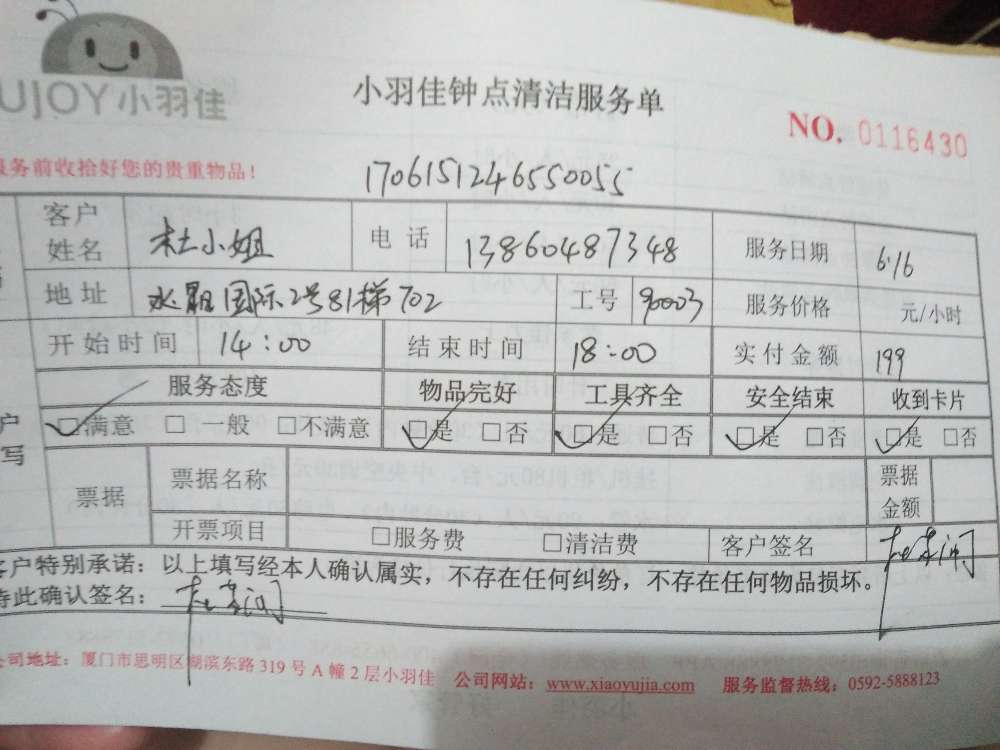 UJOY小羽佳
小羽佳钟点清洁服务单
NO. 0116430
服务前收拾好您的贵重物品!
1706151246550055
客户姓名 杜小姐 电话 13860487348 服务日期 6.16
地址 水晶国际2号81梯702 工号 90003 服务价格 元/小时
开始时间 14:00 结束时间 18:00 实付金额 199
服务态度 物品完好 工具齐全 安全结束 收到卡片
☑满意 □一般 □不满意 ☑是 □否 ☑是 □否 ☑是 □否 ☑是 □否
票据 票据名称 票据金额
开票项目 □服务费 □清洁费 客户签名
客户特别承诺:以上填写经本人确认属实,不存在任何纠纷,不存在任何物品损坏。
特此确认签名:
公司地址:厦门市思明区湖滨东路 319 号 A 幢 2 层小羽佳 公司网站:www.xiaoyujia.com 服务监督热线:0592-5888123